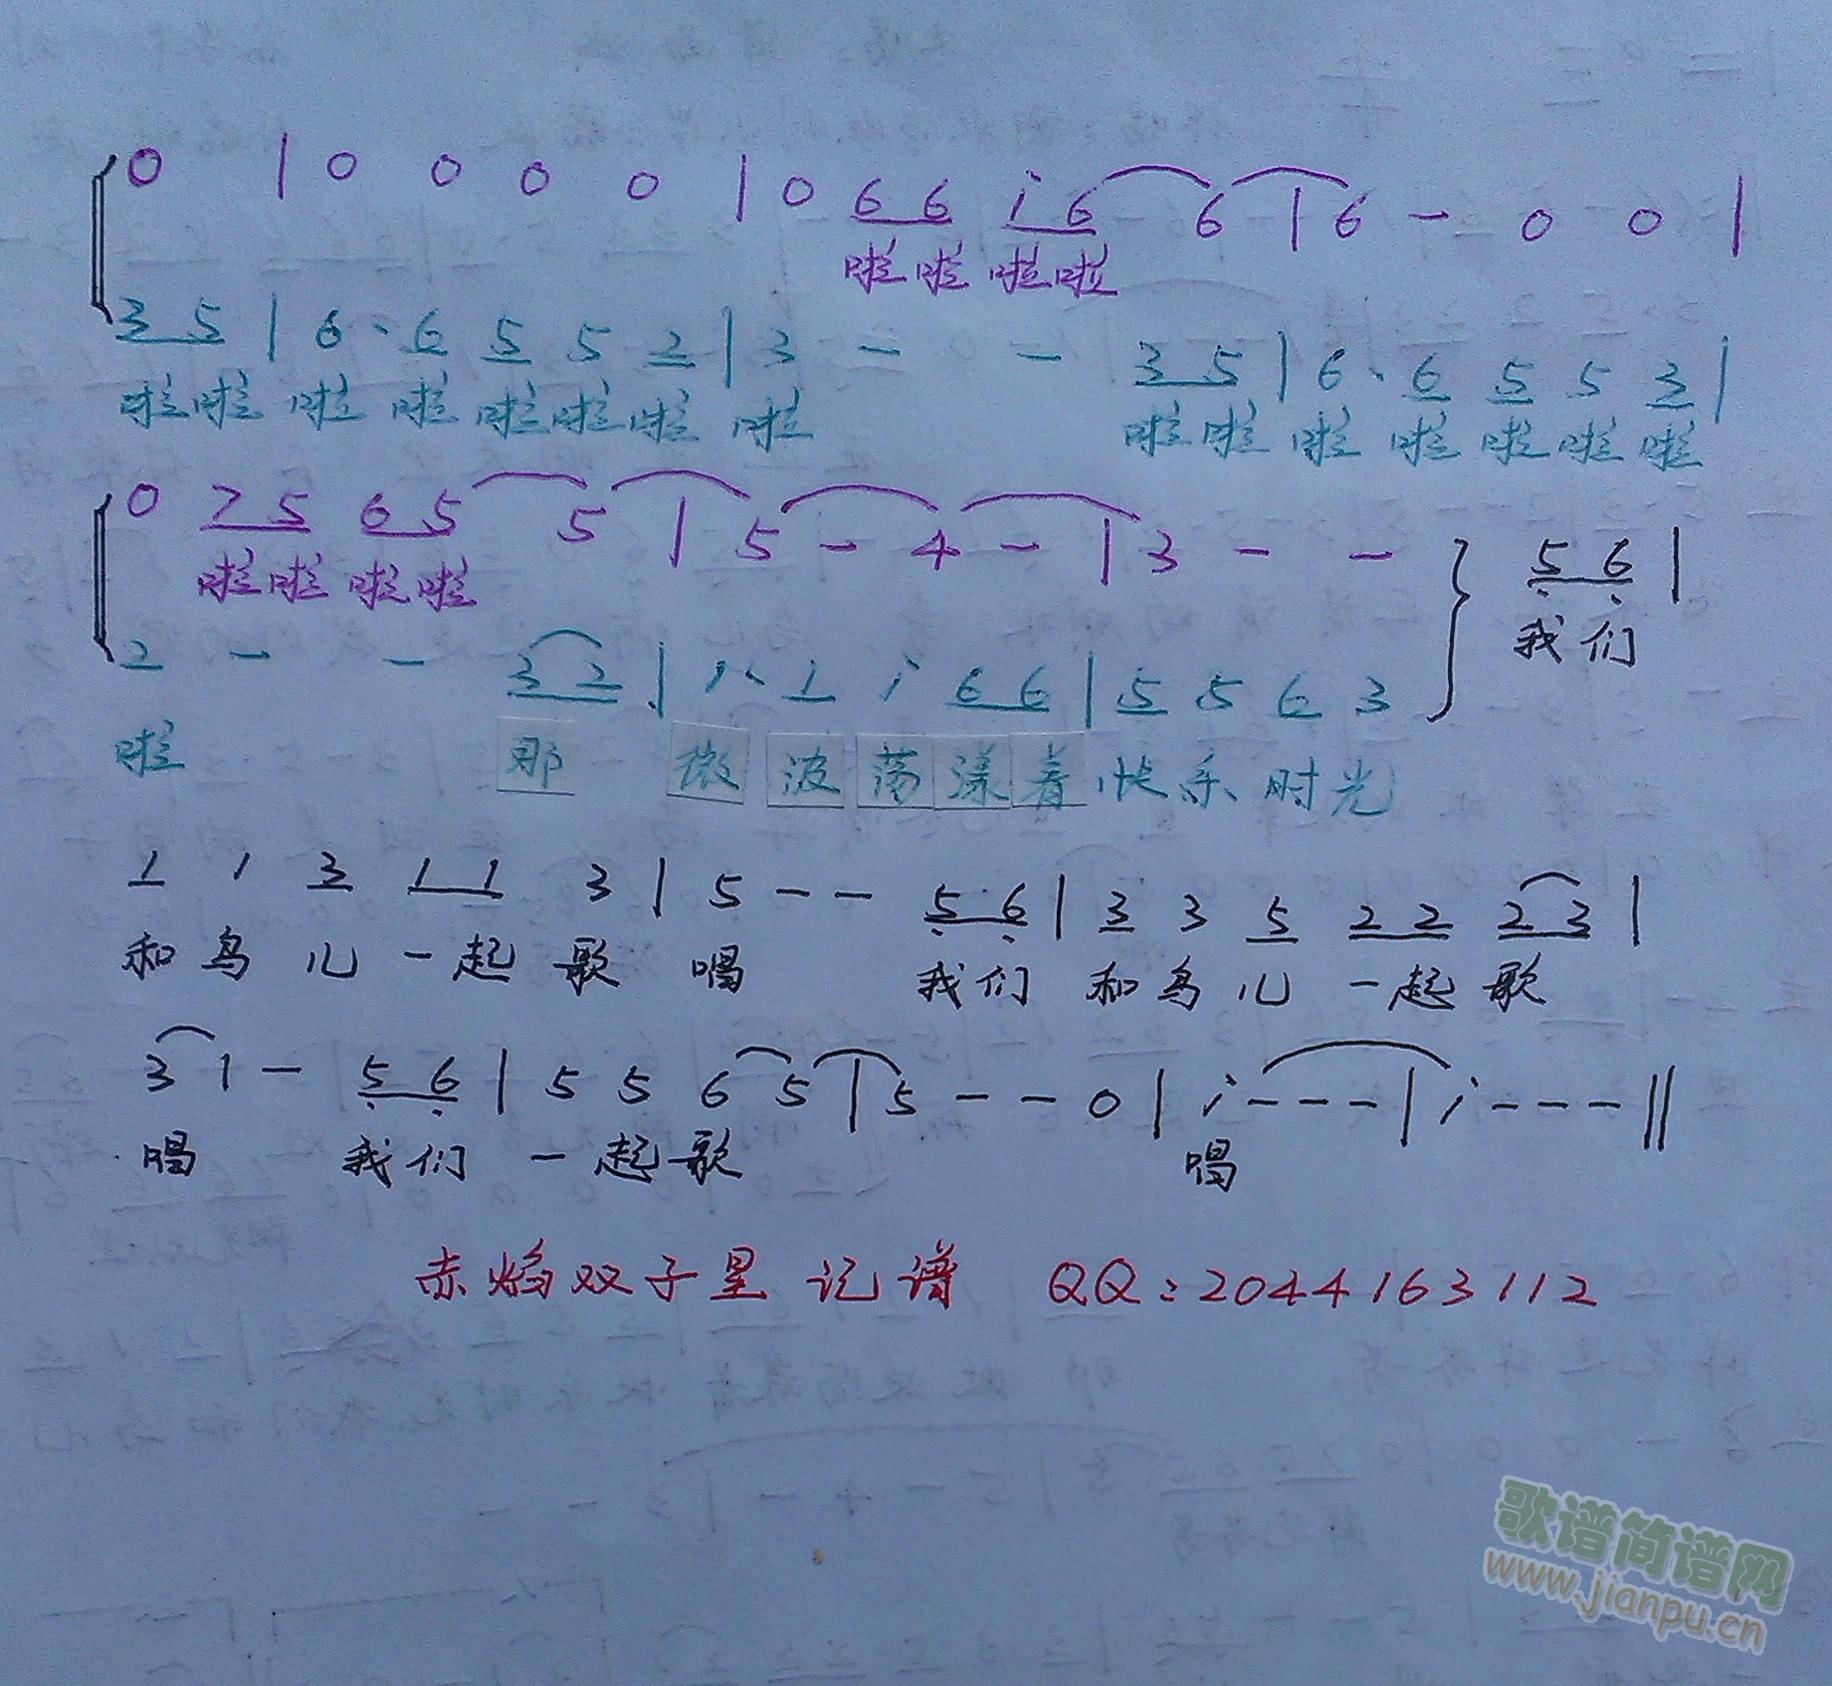 0 | 0 0 0 0 | 0 6 6 i 6 6 | 6 - 0 0 |
啦啦 啦啦
3 5 | 6 · 6 5 5 2 | 3 - - 3 5 | 6 · 6 5 5 3 |
啦啦 啦 啦 啦啦啦 啦 啦啦 啦 啦 啦 啦 啦
0 7 5 6 5 5 | 5 - 4 - | 3 - - } 5 6 |
啦啦 啦啦 我们
2 - - 3 2 | 1 · 1 i 6 6 | 5 5 6 3
啦 那 微 波 荡 漾 着 快乐 时光
1 1 3 1 1 3 | 5 - - 5 6 | 3 3 5 2 2 2 3 |
和鸟儿 一起 歌 唱 我们 和鸟儿 一起 歌
3 1 - 5 6 | 5 5 6 5 | 5 - - 0 | i - - - | i - - - ||
唱 我们 一起歌 唱
赤焰双子星 记谱 QQ:2044163112
歌谱简谱网
www.jianpu.cn